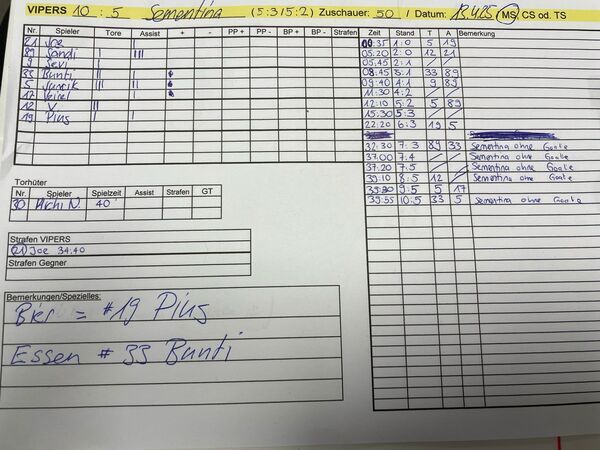 VIPERS 10 : 5 Sementina (5:3/5:2) Zuschauer: 50 / Datum: 13.4.25 / MS/ CS od. TS
Nr. Spieler Tore Assist + - PP + PP - BP + BP - Strafen
21 Joe I
89 Sandi I III
9 Sevi I
33 Bunti II I
5 III II
17 I
12 V. II
19 Pius II
Torhüter
Nr. Spieler Spielzeit Assist Strafen GT
30 Michi N. 40'
Strafen VIPERS
(21) Joe 34:40
Strafen Gegner
Bemerkungen/Spezielles:
Bier = #19 Pius
Essen # 33 Bunti
Zeit Stand T A Bemerkung
00:35 1:0 5 19
05:20 2:0 12 21
05:45 2:1 / /
08:45 3:1 33 89
09:40 4:1 9 89
11:30 4:2 / /
12:10 5:2 5 89
15:30 5:3 / /
22:20 6:3 19 5
32:30 7:3 89 33 Sementina ohne Goalie
37:00 7:4 / / Sementina ohne Goalie
37:20 7:5 / / Sementina ohne Goalie
39:10 8:5 12 / Sementina ohne Goalie
39:30 9:5 5 17
39:55 10:5 33 5 Sementina ohne Goalie